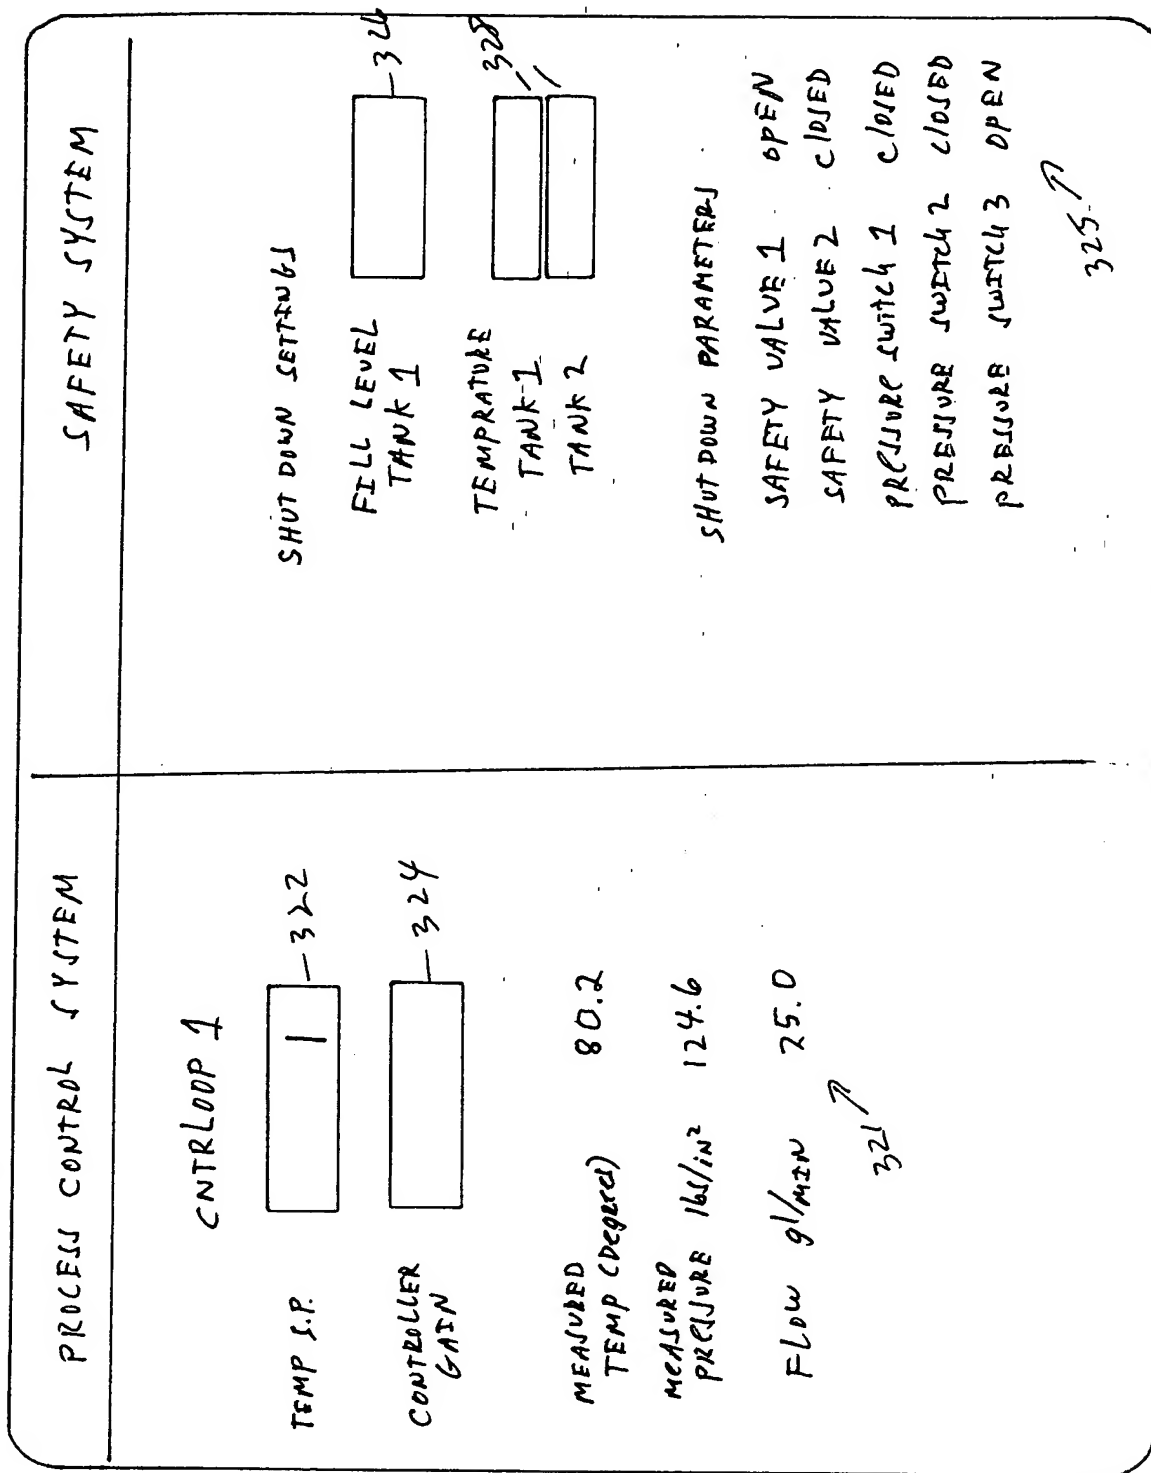 PROCESS CONTROL SYSTEM
CNTRLOOP 1
TEMP S.P. 322
CONTROLLER
GAIN 324
MEASURED
TEMP (Degrees) 80.2
MEASURED
PRESSURE lbs/in² 124.6
FLOW gl/MIN 25.0
321
SAFETY SYSTEM
SHUT DOWN SETTINGS
FILL LEVEL
TANK 1 326
TEMPRATURE 328
TANK-1
TANK 2
SHUT DOWN PARAMETERS
SAFETY VALVE 1 OPEN
SAFETY VALUE 2 CLOSED
PRESSURE SWITCH 1 CLOSED
PRESSURE SWITCH 2 CLOSED
PRESSURE SWITCH 3 OPEN
325